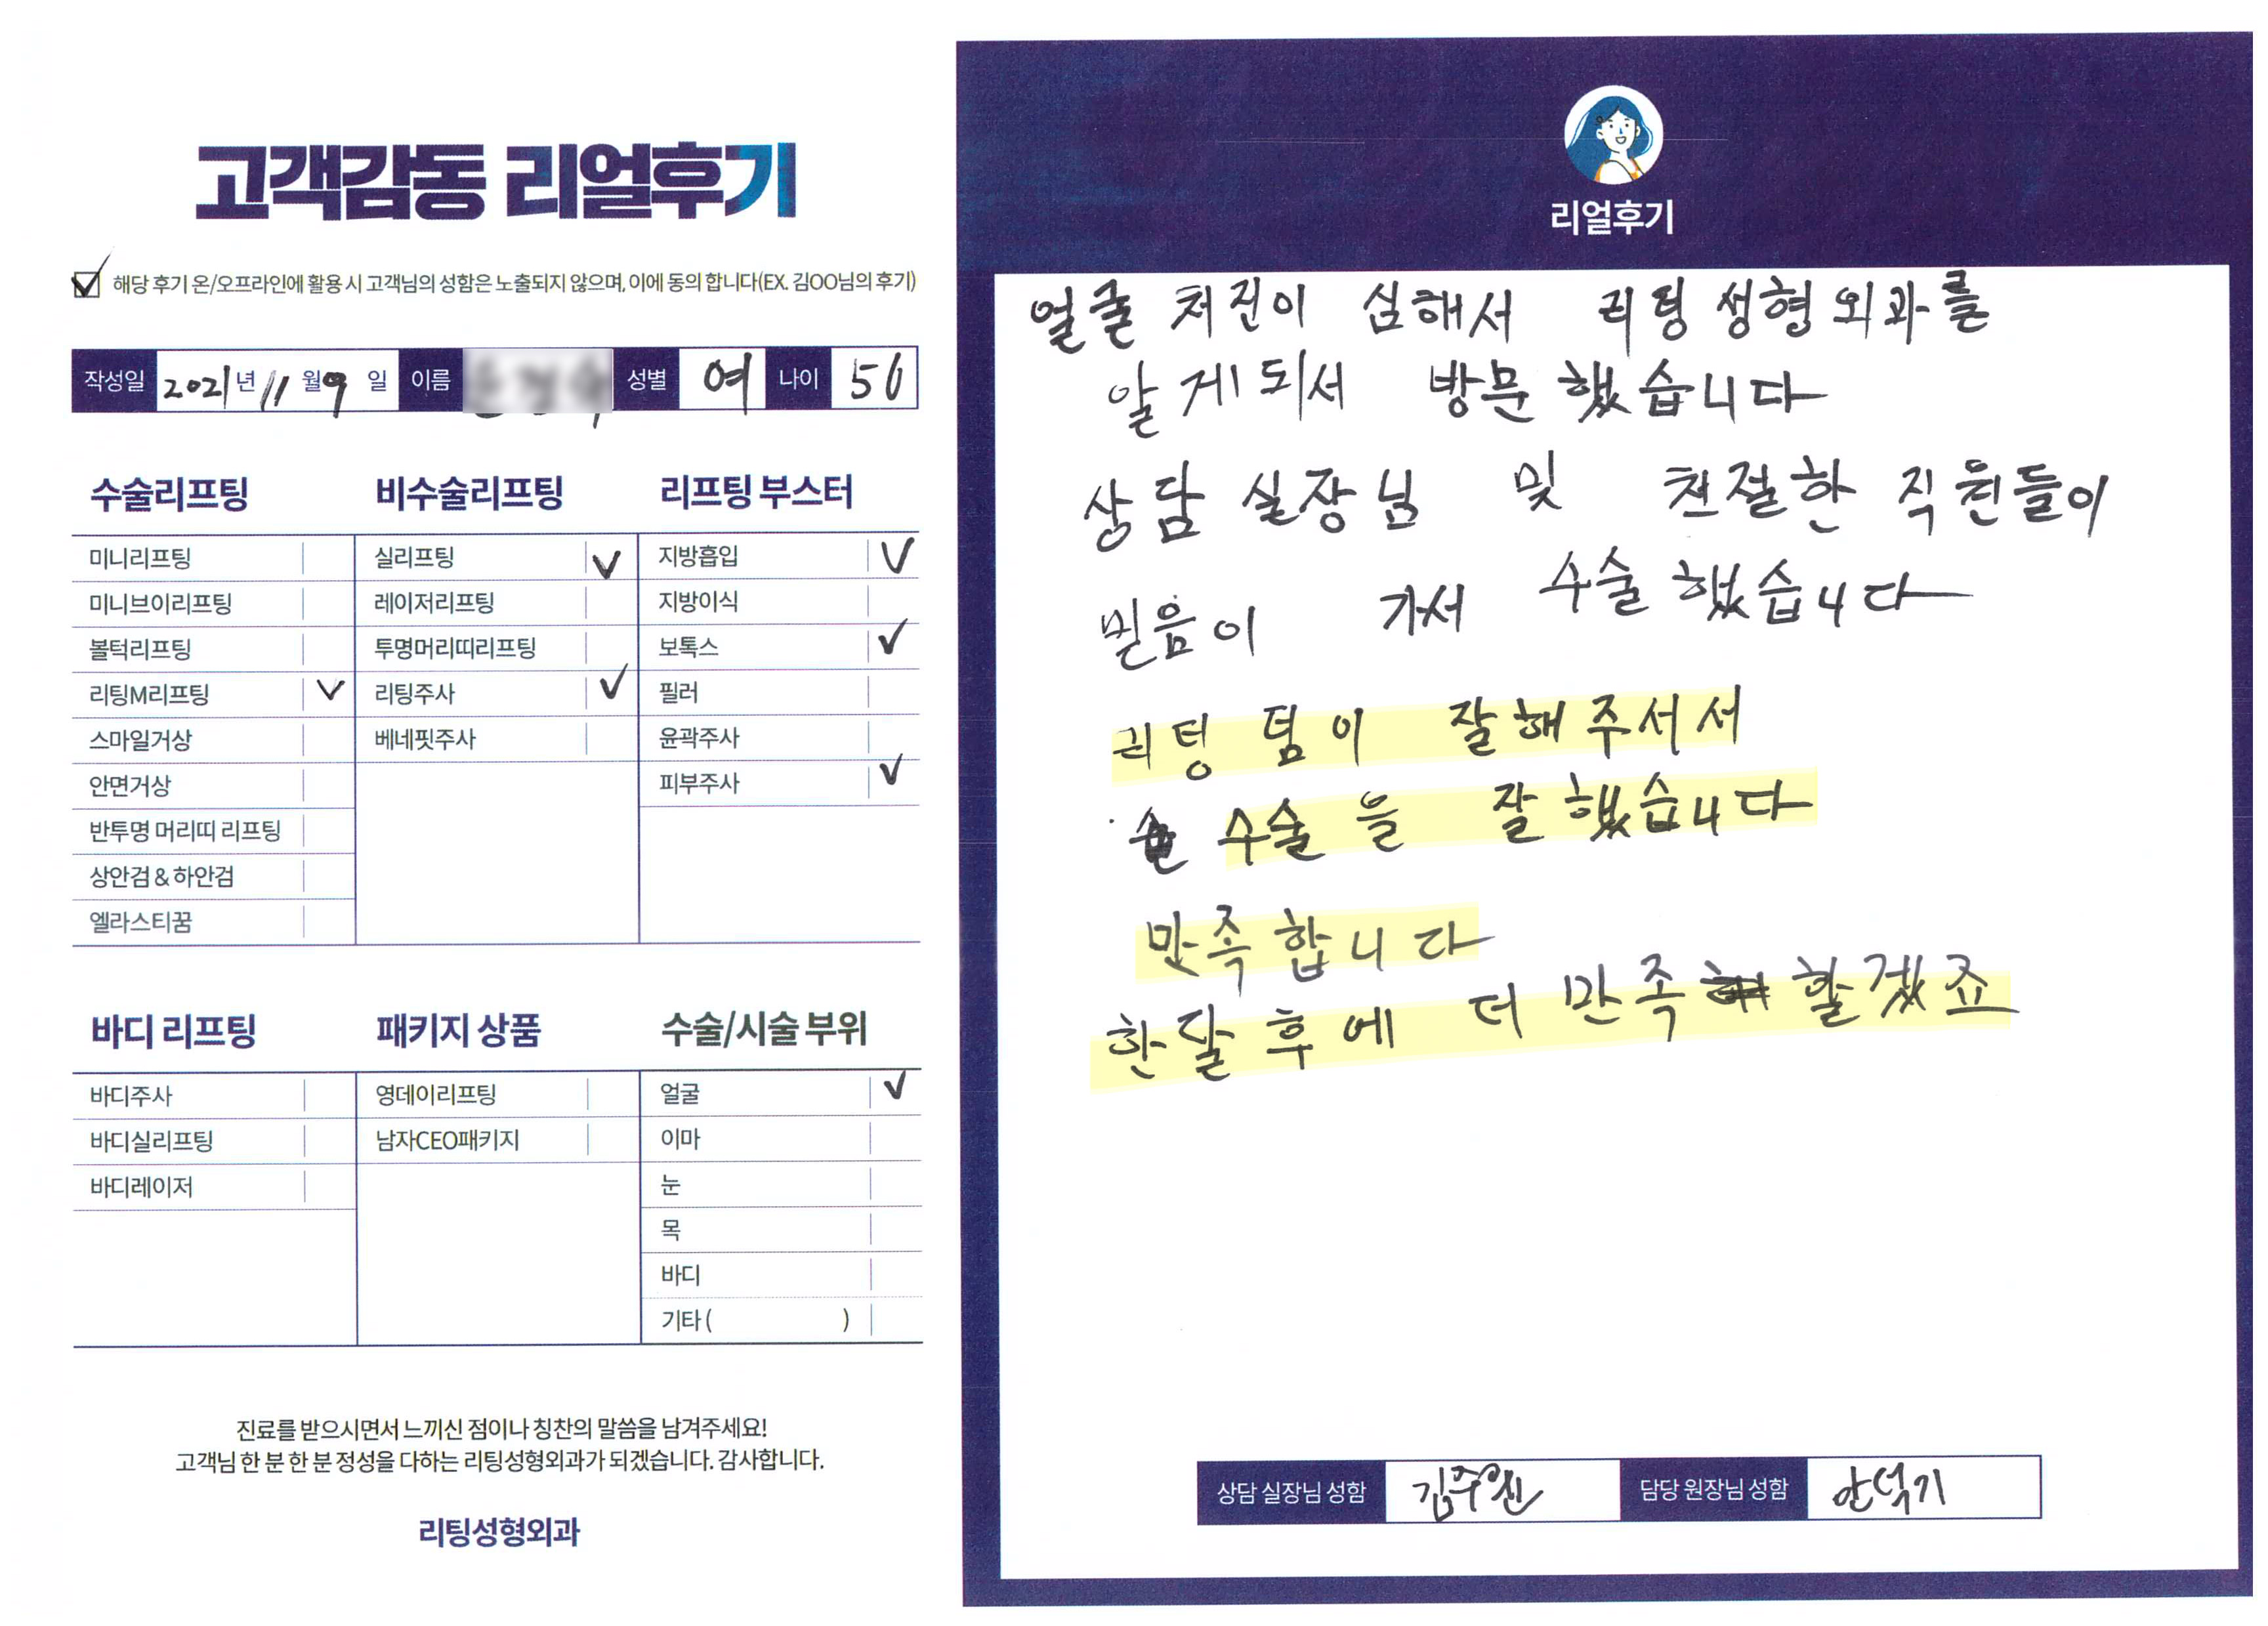 고객감동 리얼후기
해당 후기 온/오프라인에 활용 시 고객님의 성함은 노출되지 않으며, 이에 동의 합니다(EX. 김OO님의 후기)
작성일 2021년 11월 9일 이름 성별 여 나이
수술리프팅
미니리프팅
미니브이리프팅
볼턱리프팅
리팅M리프팅 V
스마일거상
안면거상
반투명 머리띠 리프팅
상안검 & 하안검
엘라스티꿈
비수술리프팅
실리프팅 V
레이저리프팅
투명머리띠리프팅
리팅주사 V
베네핏주사
리프팅 부스터
지방흡입 V
지방이식
보톡스 V
필러
윤곽주사
피부주사 V
바디 리프팅
바디주사
바디실리프팅
바디레이저
패키지 상품
영데이리프팅
남자CEO패키지
수술/시술 부위
얼굴 V
이마
눈
목
바디
기타 ( )
진료를 받으시면서 느끼신 점이나 칭찬의 말씀을 남겨주세요!
고객님 한 분 한 분 정성을 다하는 리팅성형외과가 되겠습니다. 감사합니다.
리팅성형외과
리얼후기
얼굴 처진이 심해서 리팅 성형외과를
알게되서 방문했습니다
상담 실장님 및 친절한 직원들이
믿음이 가서 수술했습니다
리팅 팀이 잘해주셔서
수술을 잘했습니다
만족합니다
한달후에 더 만족 할겠죠
상담 실장님 성함 김주원
담당 원장님 성함 안석기